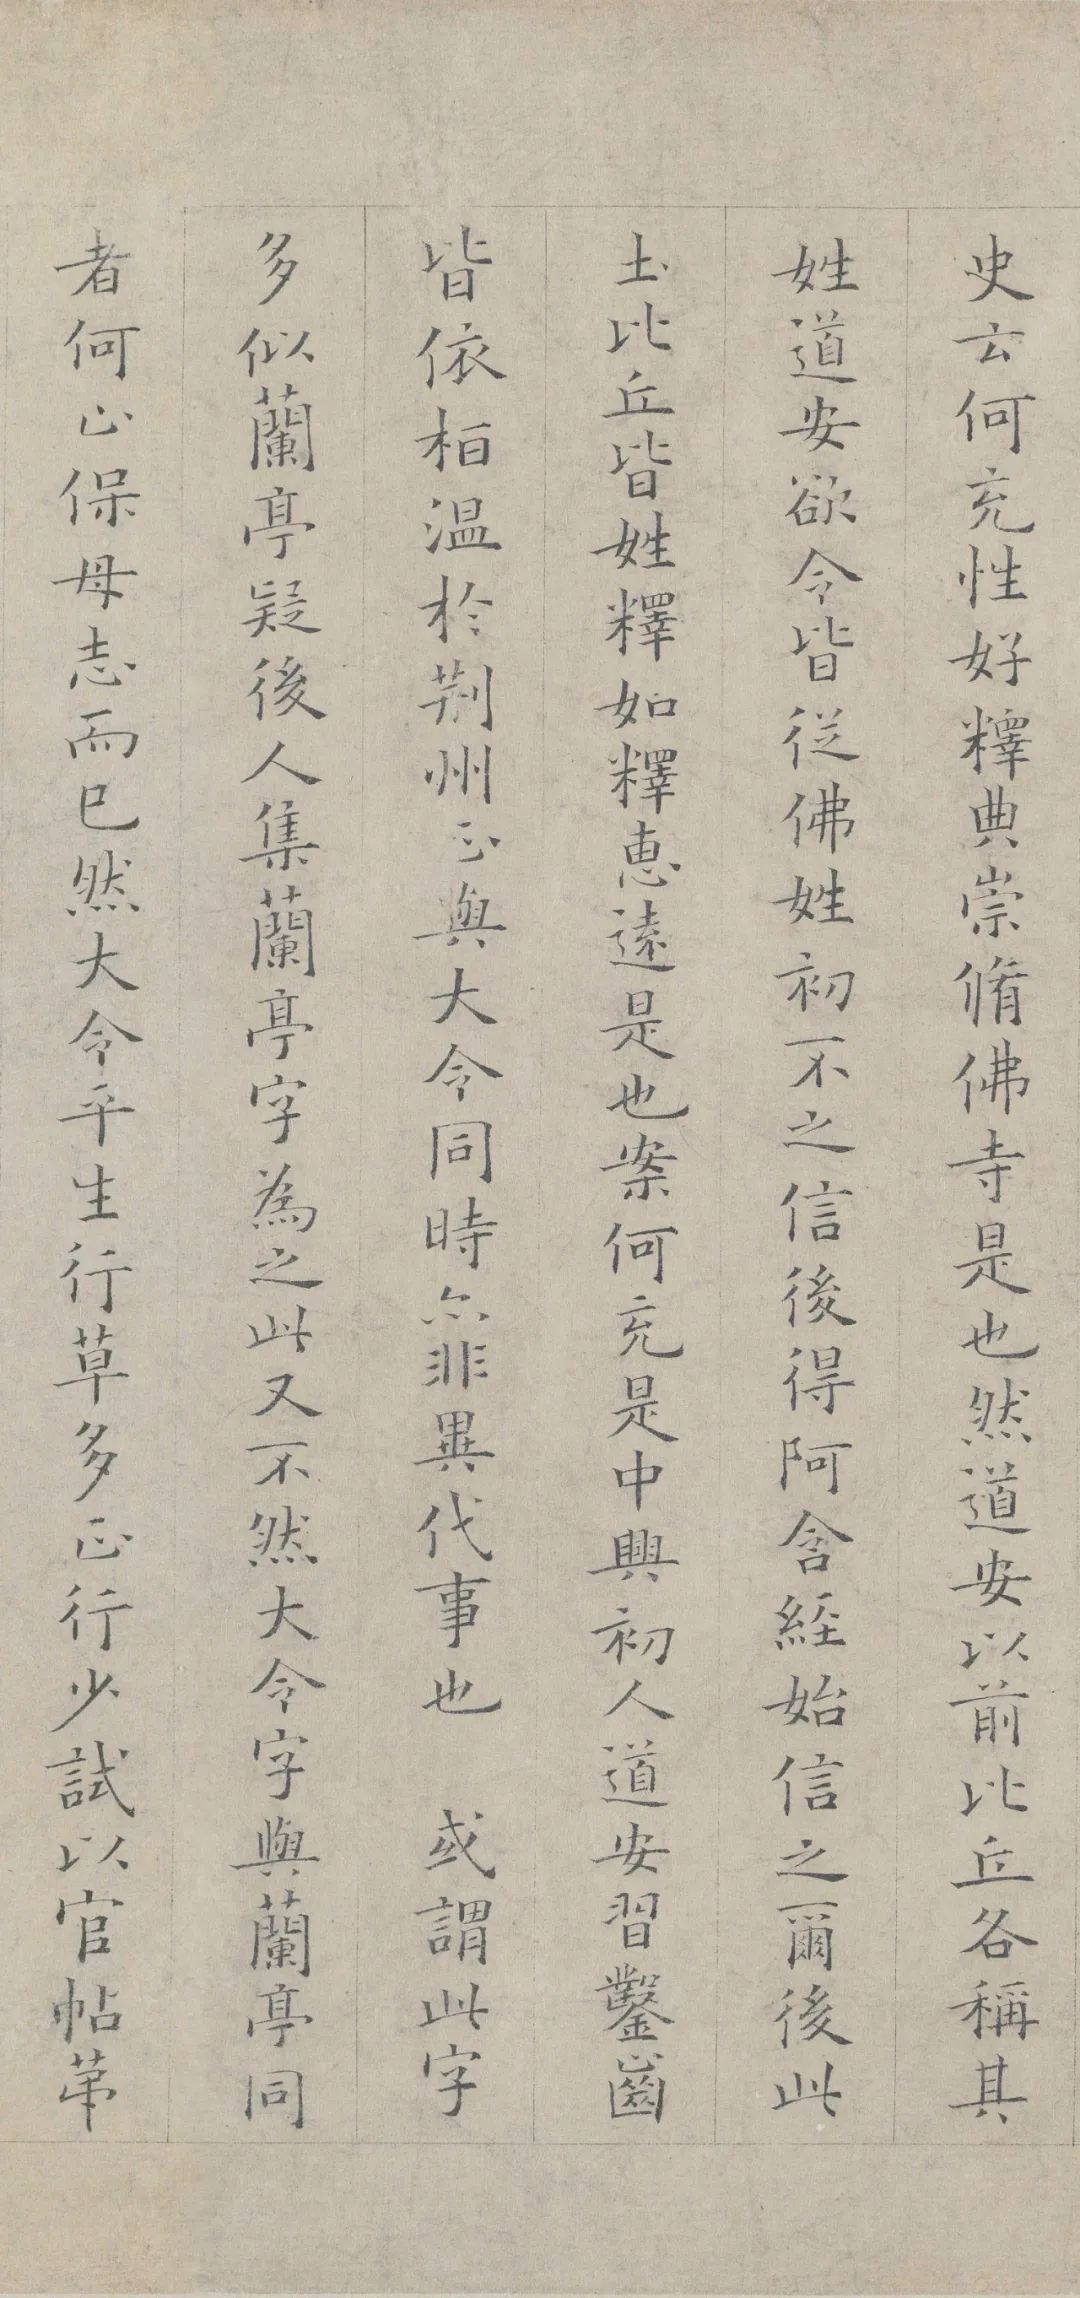 史云何充性好釋典崇脩佛寺是也然道安以前比丘各稱其
姓道安欲令皆從佛姓初不之信後得阿含經始信之爾後此
土比丘皆姓釋如釋惠遠是也案何充是中興初人道安習鑿齒
皆依桓溫於荆州正與大令同時亦非異代事也 或謂此字
多似蘭亭疑後人集蘭亭字為之此又不然大令字與蘭亭同
者何止保母志而已然大令平生行草多正行少試以官帖苐